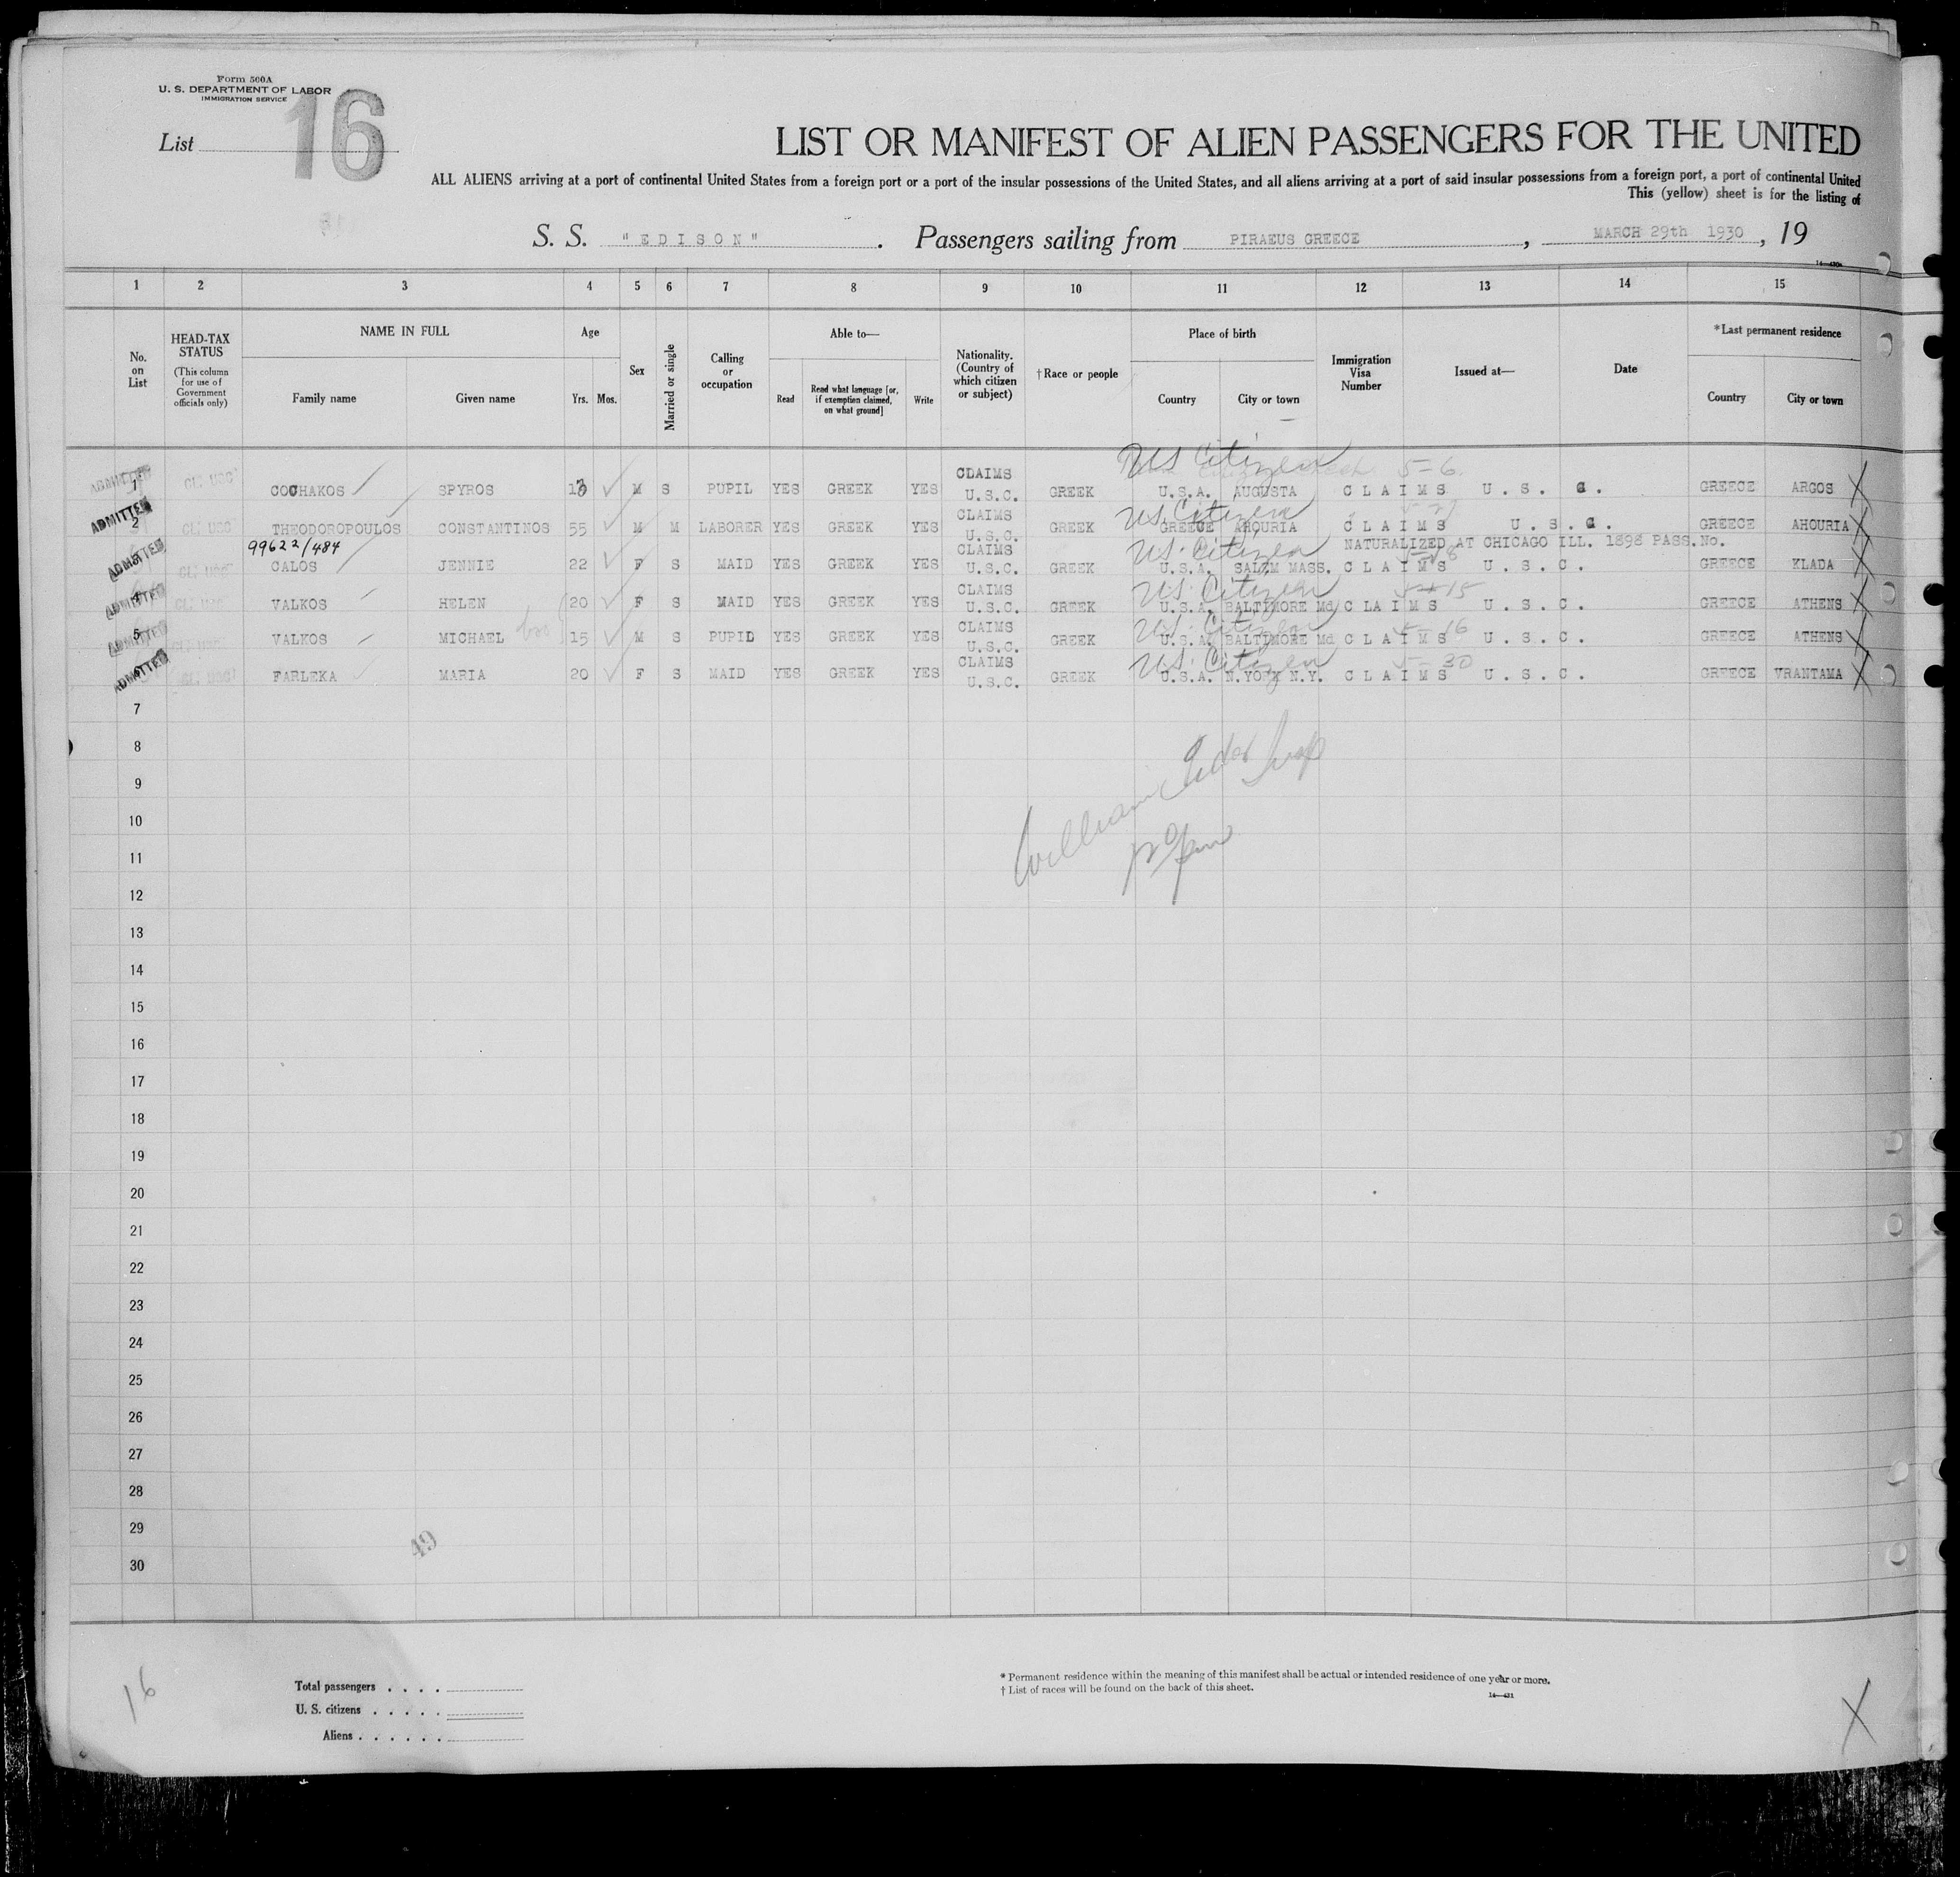 Form 500A
U. S. DEPARTMENT OF LABOR
IMMIGRATION SERVICE
List 16
LIST OR MANIFEST OF ALIEN PASSENGERS FOR THE UNITED
ALL ALIENS arriving at a port of continental United States from a foreign port or a port of the insular possessions of the United States, and all aliens arriving at a port of said insular possessions from a foreign port, a port of continental United
This (yellow) sheet is for the listing of
S. S. "EDISON" . Passengers sailing from PIRAEUS GREECE , MARCH 29th 1930 , 19
1 2 3 4 5 6 7 8 9 10 11 12 13 14 15
No. on List
HEAD-TAX STATUS (This column for use of Government officials only)
NAME IN FULL
Family name Given name
Age
Yrs. Mos.
Sex
Married or single
Calling or occupation
Able to—
Read Read what language [or, if exemption claimed, on what ground] Write
Nationality. (Country of which citizen or subject)
†Race or people
Place of birth
Country City or town
Immigration Visa Number
Issued at—
Date
*Last permanent residence
Country City or town
US Citizen 5-6
ADMITTED 1 COCHAKOS SPYROS M S PUPIL YES GREEK YES CLAIMS U.S.C. GREEK U.S.A. AUGUSTA CLAIMS U.S.C. GREECE ARGOS X
US Citizen
ADMITTED 2 THEODOROPOULOS CONSTANTINOS 55 M M LABORER YES GREEK YES CLAIMS U.S.C. GREEK GREECE AHOURIA CLAIMS U.S.C. GREECE AHOURIA X
99622/484 US Citizen NATURALIZED AT CHICAGO ILL. 1898 PASS.No.
ADMITTED 3 CALOS JENNIE 22 F S MAID YES GREEK YES CLAIMS U.S.C. GREEK U.S.A. SALEM MASS. CLAIMS U.S.C. GREECE KLADA X
US Citizen 5-15
ADMITTED 4 VALKOS HELEN 20 F S MAID YES GREEK YES CLAIMS U.S.C. GREEK U.S.A. BALTIMORE Md CLAIMS U.S.C. GREECE ATHENS X
US Citizen 5-16
ADMITTED 5 VALKOS MICHAEL bro 15 M S PUPIL YES GREEK YES CLAIMS U.S.C. GREEK U.S.A. BALTIMORE Md CLAIMS U.S.C. GREECE ATHENS X
US Citizen 5-30
ADMITTED 6 FARLEKA MARIA 20 F S MAID YES GREEK YES CLAIMS U.S.C. GREEK U.S.A. N.YORK N.Y. CLAIMS U.S.C. GREECE VRANTAMA X
7
8
9
William
10
11
12
13
14
15
16
17
18
19
20
21
22
23
24
25
26
27
28
29
49
30
16
Total passengers . . . .
U. S. citizens . . . . .
Aliens . . . . . .
* Permanent residence within the meaning of this manifest shall be actual or intended residence of one year or more.
† List of races will be found on the back of this sheet.
14—421
X